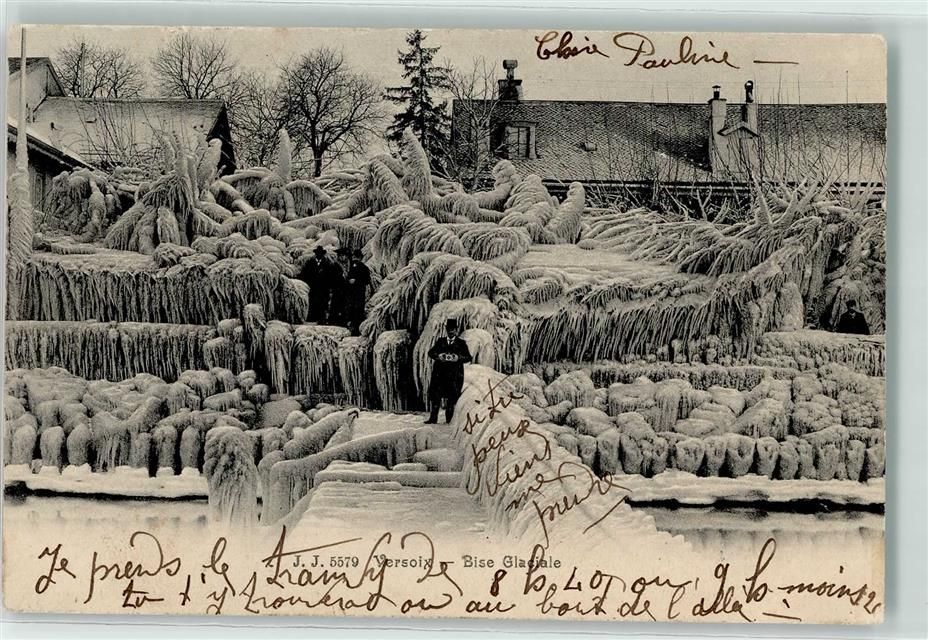 Chère Pauline —
si tu
peux
vient
me
prendre
J. J. 5579 Versoix — Bise Glaciale
Je prends le tramf de 8 h 40 ou 9 h moins 20
tu t'y trouveras ou au bout de l'allée —